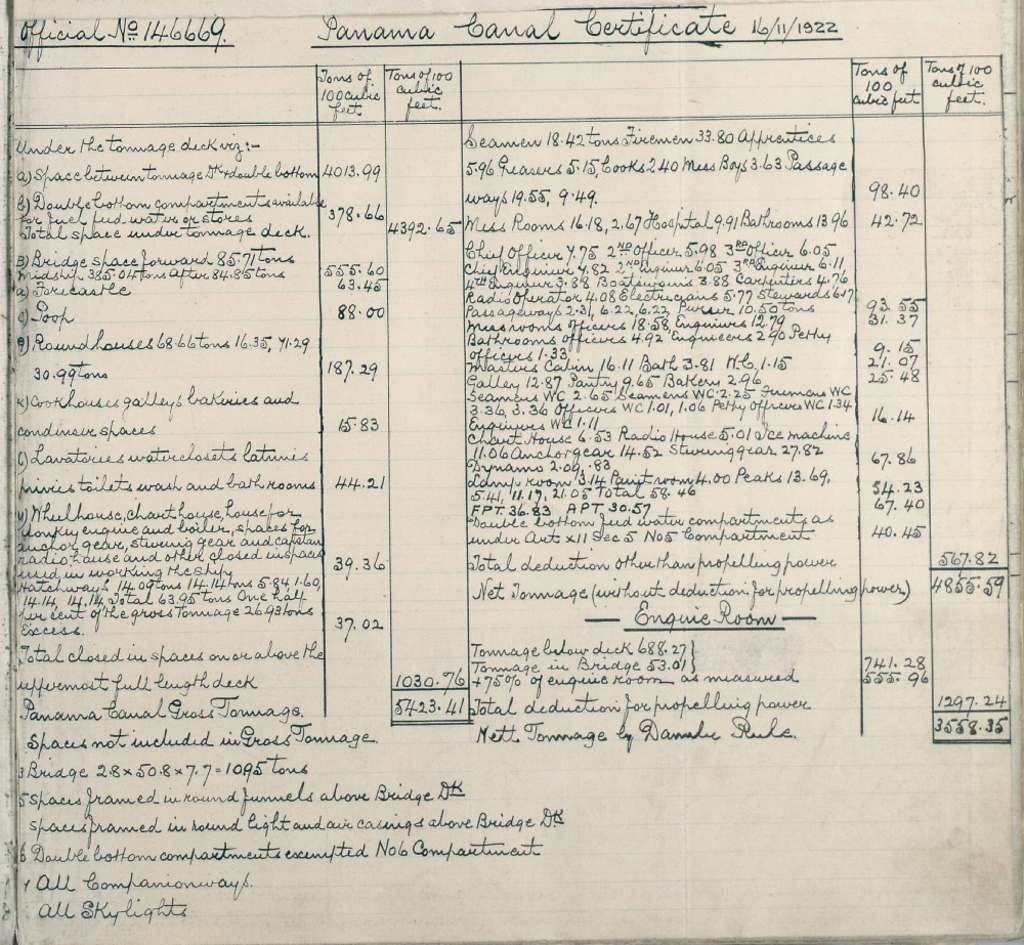 Official No 146669.
Panama Canal Certificate 16/11/1922
Tons of 100 cubic feet
Tons of 100 cubic feet.
Under the tonnage deck viz:-
a) Space between tonnage Dk + double bottom 4013.99
b) Double bottom compartments available
for fuel feed water or stores 378.66
Total space under tonnage deck. 4392.65
B) Bridge space forward 85.71 tons
Midship 385.04 tons After 84.85 tons 555.60
a) Forecastle 63.45
c) Poop 88.00
Round houses 68.66 tons 16.35, 71.29
30.99 tons 187.29
k) Cookhouses galleys bakeries and
condenser spaces 15.83
l) Lavatories waterclosets latrines
privies toilets wash and bath rooms 44.21
Wheelhouse, chart house, house for
donkey engine and boiler, spaces for
anchor gear, steering gear and capstan
radio house and other closed in spaces
used in working the ship 39.36
Hatchways 14.09 tons 14.14 tons 5.84 1.60,
14.14, 14.14 Total 63.95 tons One half
per cent of the gross tonnage 26.93 tons
Excess. 37.02
Total closed in spaces on or above the
uppermost full length deck 1030.76
Panama Canal Gross Tonnage. 5423.41
Spaces not included in Gross Tonnage
3 Bridge 2.8 x 50.8 x 7.7 = 1095 tons
5 Spaces framed in round funnels above Bridge Dk
Spaces framed in round light and air casings above Bridge Dk
6 Double bottom compartments exempted No 6 Compartment
All Companionways.
All Skylights
Tons of 100 cubic feet
Tons of 100 cubic feet.
Seamen 18.42 tons Firemen 33.80 Apprentices
5.96 Greasers 5.15, Cooks 2.40 Mess Boys 3.63 Passage
ways 19.55, 9.49. 98.40
Mess Rooms 16.18, 2.67 Hospital 9.91 Bathrooms 13.96 42.72
Chief Officer 7.75 2nd Officer 5.98 3rd Officer 6.05
Chief Engineer 7.82 2nd Engineer 6.05 3rd Engineer 6.11
4th Engineer 3.88 Boatswains 3.88 Carpenters 4.76
Radio Operator 4.08 Electricians 5.77 Stewards 6.17
Passageways 2.31, 6.22, 6.22, Purser 10.50 tons 93.55
Messrooms Officers 18.58, Engineers 12.79 31.37
Bathrooms officers 4.92 Engineers 2.90 Petty
officers 1.33 9.15
Masters Cabin 16.11 Bath 3.81 W.C. 1.15 21.07
Galley 12.87 Pantry 9.65 Bakery 2.96 25.48
Seamens WC 2.65 Seamens WC 2.25 Firemens WC
3.36, 3.36 Officers WC 1.01, 1.06 Petty Officers WC 1.34
Engineers WC 1.11 16.14
Chart House 6.53 Radio House 5.01 Ice machine
11.06 Anchor gear 14.52 Steering gear 27.82
Dynamo 2.09, .83 67.86
Lamp room 3.14 Paint room 4.00 Peaks 13.69,
5.41, 11.17, 21.05 Total 58.46 54.23
FPT 36.83 APT 30.57 67.40
Double bottom feed water compartments as
under Art XII Sec 5 No 5 Compartment 40.45
Total deduction other than propelling power 567.82
Net Tonnage (without deduction for propelling power) 4855.59
— Engine Room —
Tonnage below deck 688.27}
Tonnage in Bridge 53.01} 741.28
+75% of engine room as measured 555.96
Total deduction for propelling power 1297.24
Nett Tonnage by Danube Rule. 3558.35